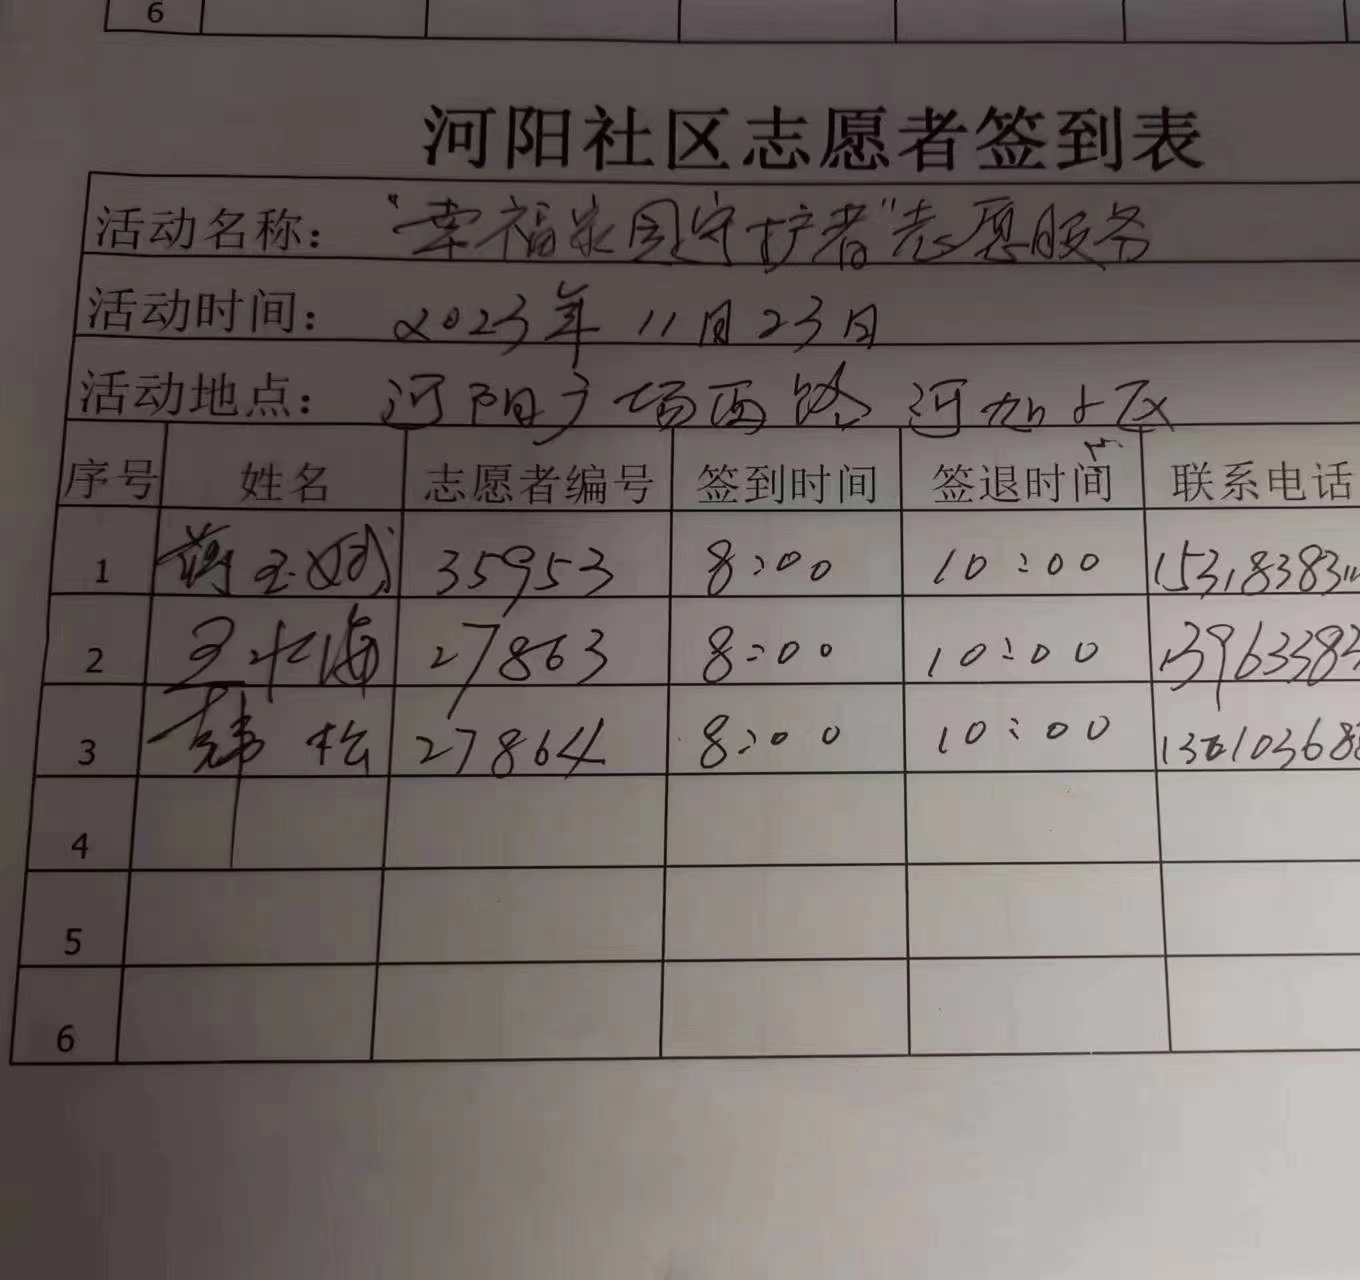 6
河阳社区志愿者签到表
活动名称: "幸福家园守护者"志愿服务
活动时间: 2023年11月23日
活动地点: 河阳广场西路 河加小区
序号 姓名 志愿者编号 签到时间 签退时间 联系电话
1 35953 8:00 10:00 15318383
2 王北海 27863 8:00 10:00 13963383
3 韩松 27864 8:00 10:00
4
5
6